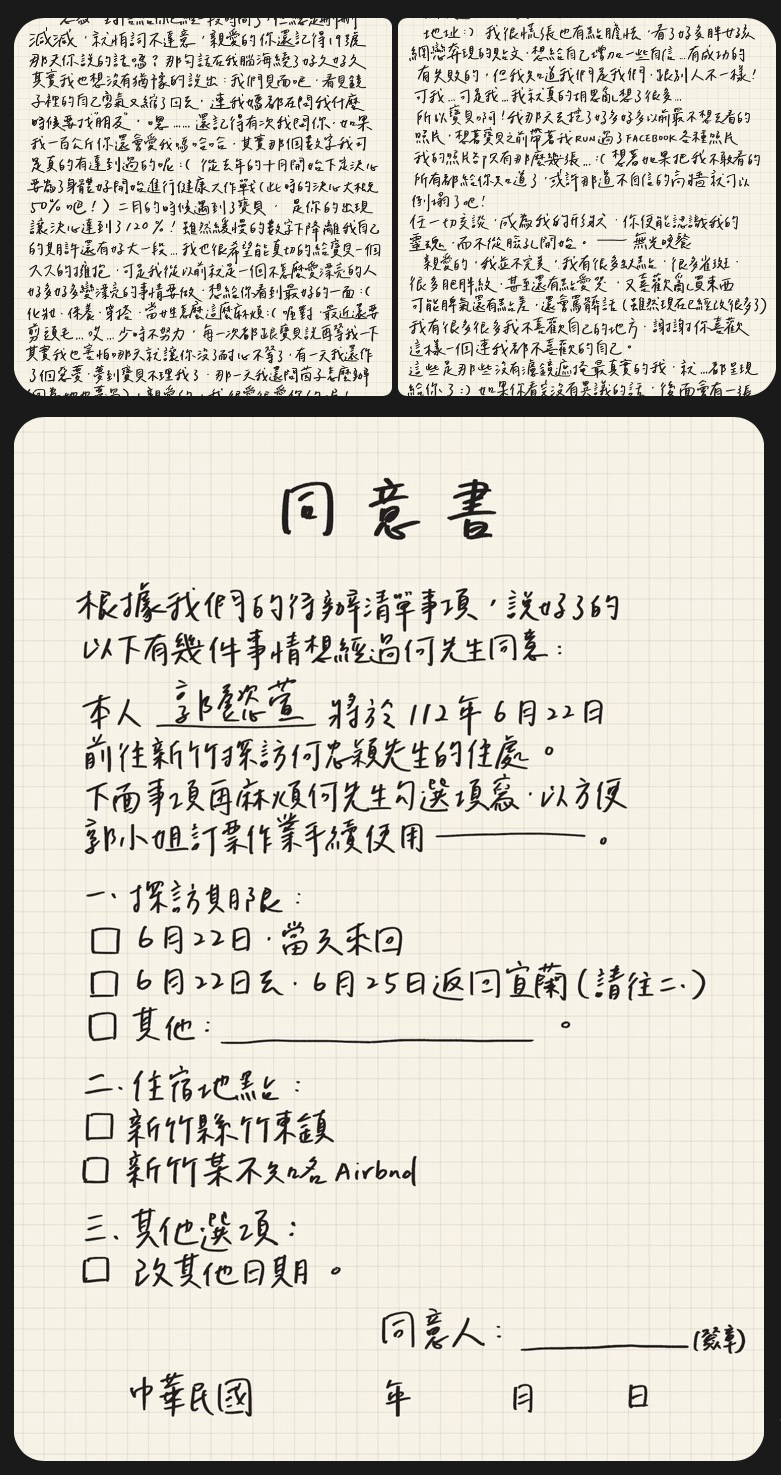 減減，就怕詞不達意，親愛的你還記得19號
那天你說的話嗎？那句話在我腦海繞了好久好久
其實我也想沒有猶豫的說出：我們見面吧，看見鏡
子裡的自己勇氣又縮了回去，連我媽都在問我什麼
時候要找朋友，嗯……還記得有次我問你，如果
我一百公斤你還會愛我嗎哈哈，其實那個數字我可
是真的有達到過的呢:( 從去年的十月開始下定決心
要為了身體好開始進行健康大作戰(此時的決心大概是
50%吧！) 二月的時候遇到了寶貝，是你的出現
讓決心達到了120%！雖然緩慢的數字下降離我自己
的期許還有好大一段…我也很希望能真切的給寶貝一個
久久的擁抱，可是我從以前就是一個不怎麼愛漂亮的人
好多好多變漂亮的事情要做，想給你看到最好的一面:(
化妝、保養、穿搭，當女生怎麼這麼麻煩:( 喔對，最近還要
剪頭毛…哎…少時不努力，每一次都跟寶貝說再等我一下
其實我也害怕哪天就讓你沒了耐心不等了，有一天我還作
了個惡夢，夢到寶貝不理我了，那一天我還問茵子怎麼辦
地址:) 我很慌張也有點膽怯，看了好多胖女孩
網戀奔現的貼文，想給自己增加一些自信…有成功的
有失敗的，但我知道我們是我們，跟別人不一樣！
可我…可是我…我就真的胡思亂想了很多…
所以寶貝啊！我那天去挖了好多好多以前最不想去看的
照片，想著寶貝之前帶著我RUN過了FACEBOOK各種照片
我的照片卻只有那麼幾張…:( 想著如果把我不敢看的
所有都給你知道了，或許那道不自信的高牆就可以
倒塌了吧！
任一切交談，成為我的形狀，你便能認識我的
靈魂，而不從臉孔開始。── 無光晚餐
親愛的，我並不完美，我有很多缺點，很多雀斑，
很多肥胖紋，甚至還有點愛哭，又喜歡亂買東西
可能脾氣還有點差，還會罵髒話(雖然現在已經改很多了)
我有很多很多我不喜歡自己的地方，謝謝你喜歡
這樣一個連我都不喜歡的自己。
這些是那些沒有濾鏡遮掩最真實的我，就…都呈現
給你了:) 如果你看完沒有異議的話，後面會有一張
同意書
根據我們的待辦清單事項，說好了的
以下有幾件事情想經過何先生同意：
本人 郭懿萱 將於112年6月22日
前往新竹探訪何忠穎先生的住處。
下面事項再麻煩何先生勾選填寫，以方便
郭小姐訂票作業手續使用────。
一、探訪期限：
□ 6月22日，當天來回
□ 6月22日去，6月25日返回宜蘭(請往二、)
□ 其他：＿＿＿＿＿＿＿＿。
二、住宿地點：
□ 新竹縣竹東鎮
□ 新竹某不知名 Airbnd
三、其他選項：
□ 改其他日期。
同意人：＿＿＿＿＿(簽章)
中華民國 年 月 日